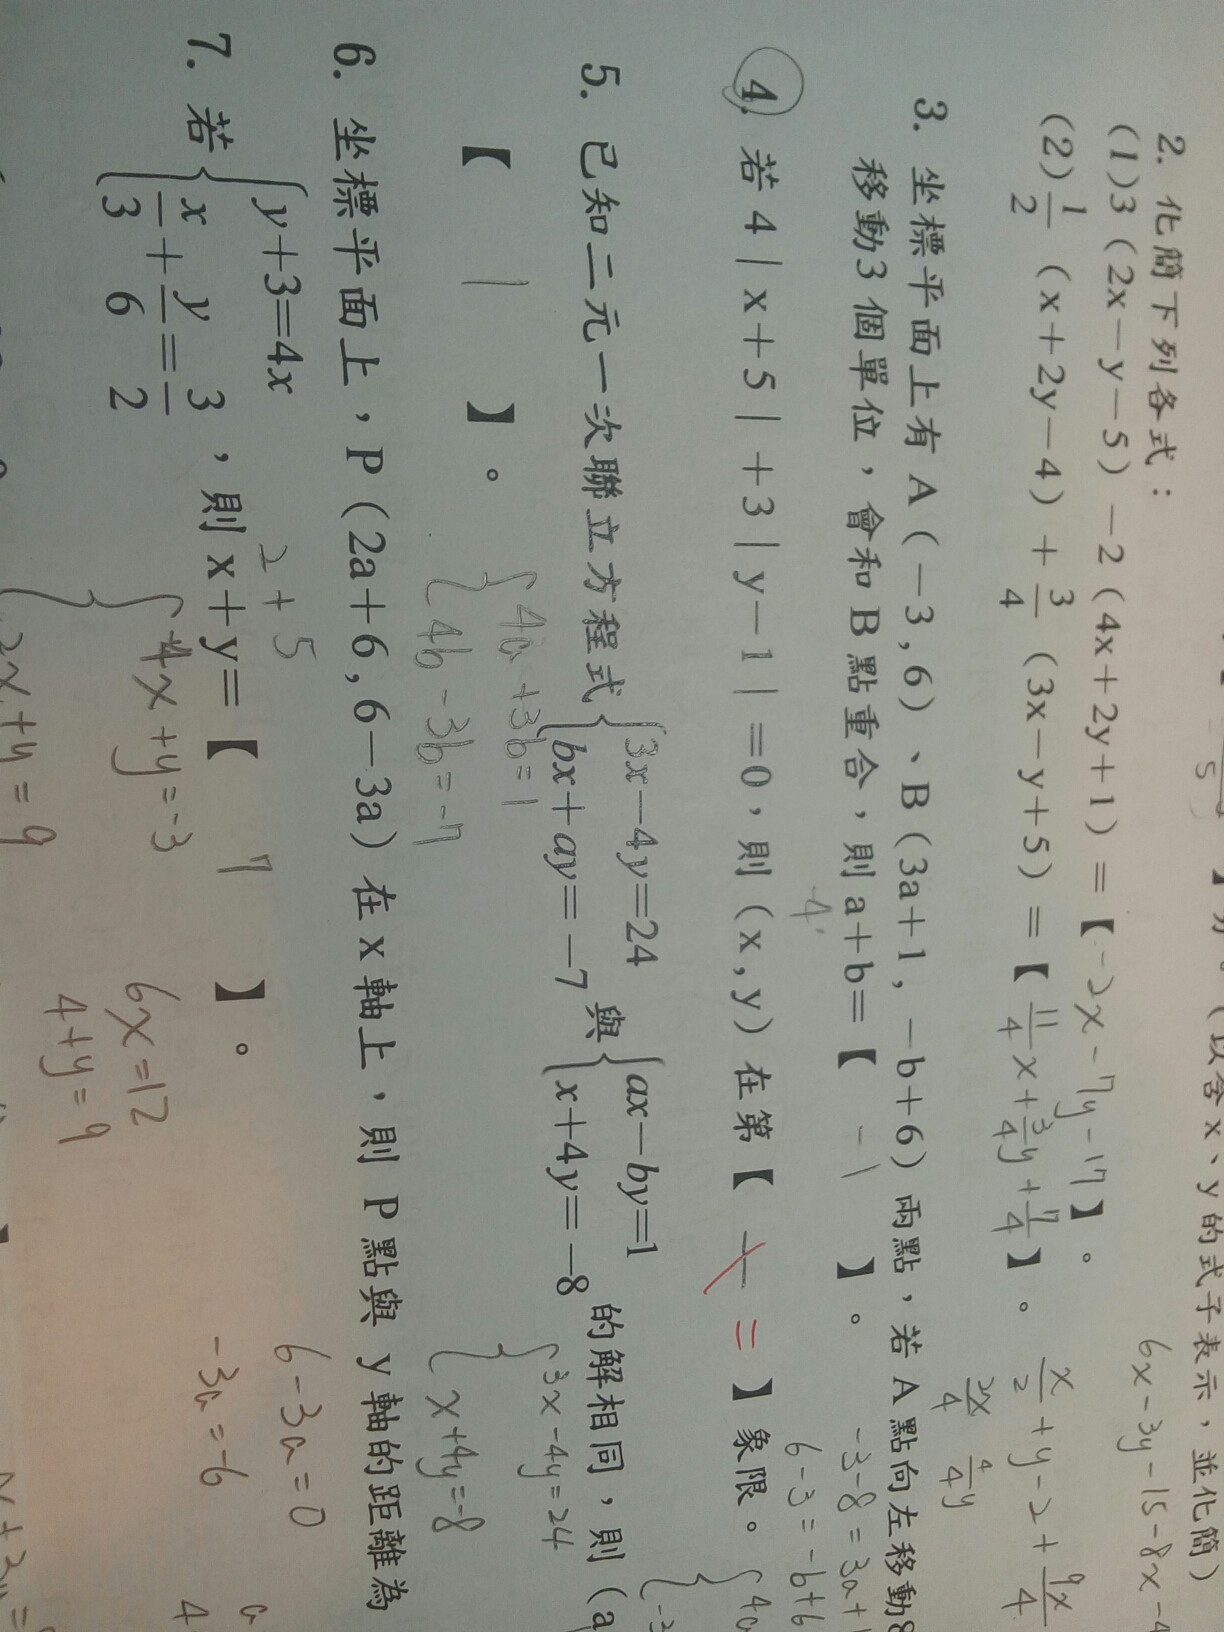 （以含x、y的式子表示，並化簡）
2. 化簡下列各式：
(1)3（2x－y－5）－2（4x＋2y＋1）＝【 -2x-7y-17 】。
6x-3y-15-8x-4
(2)1/2（x＋2y－4）＋3/4（3x－y＋5）＝【 11/4x+3/4y+7/4 】。
x/2+y-2+9x/4
2x/4 4/4y
3. 坐標平面上有A（－3,6）、B（3a＋1,－b＋6）兩點，若A點向左移動8
移動3個單位，會和B點重合，則a＋b＝【 -1 】。
-4
-3-8=3a+1
6-3=-b+6
4. 若4｜x＋5｜＋3｜y－1｜＝0，則（x,y）在第【 一 二 】象限。
5. 已知二元一次聯立方程式{3x－4y＝24 bx＋ay＝－7 與{ax－by＝1 x＋4y＝－8 的解相同，則（a
【 1 】。
{4a+3b=1
4b-3b=-7
{3x-4y=24
x+4y=-8
6. 坐標平面上，P（2a＋6,6－3a）在x軸上，則P點與y軸的距離為
6-3a=0
-3a=-6
7. 若{y＋3＝4x x/3＋y/6＝3/2，則x＋y＝【 7 】。
2+5
{-4x+y=-3
2x+y=9
6x=12
4+y=9